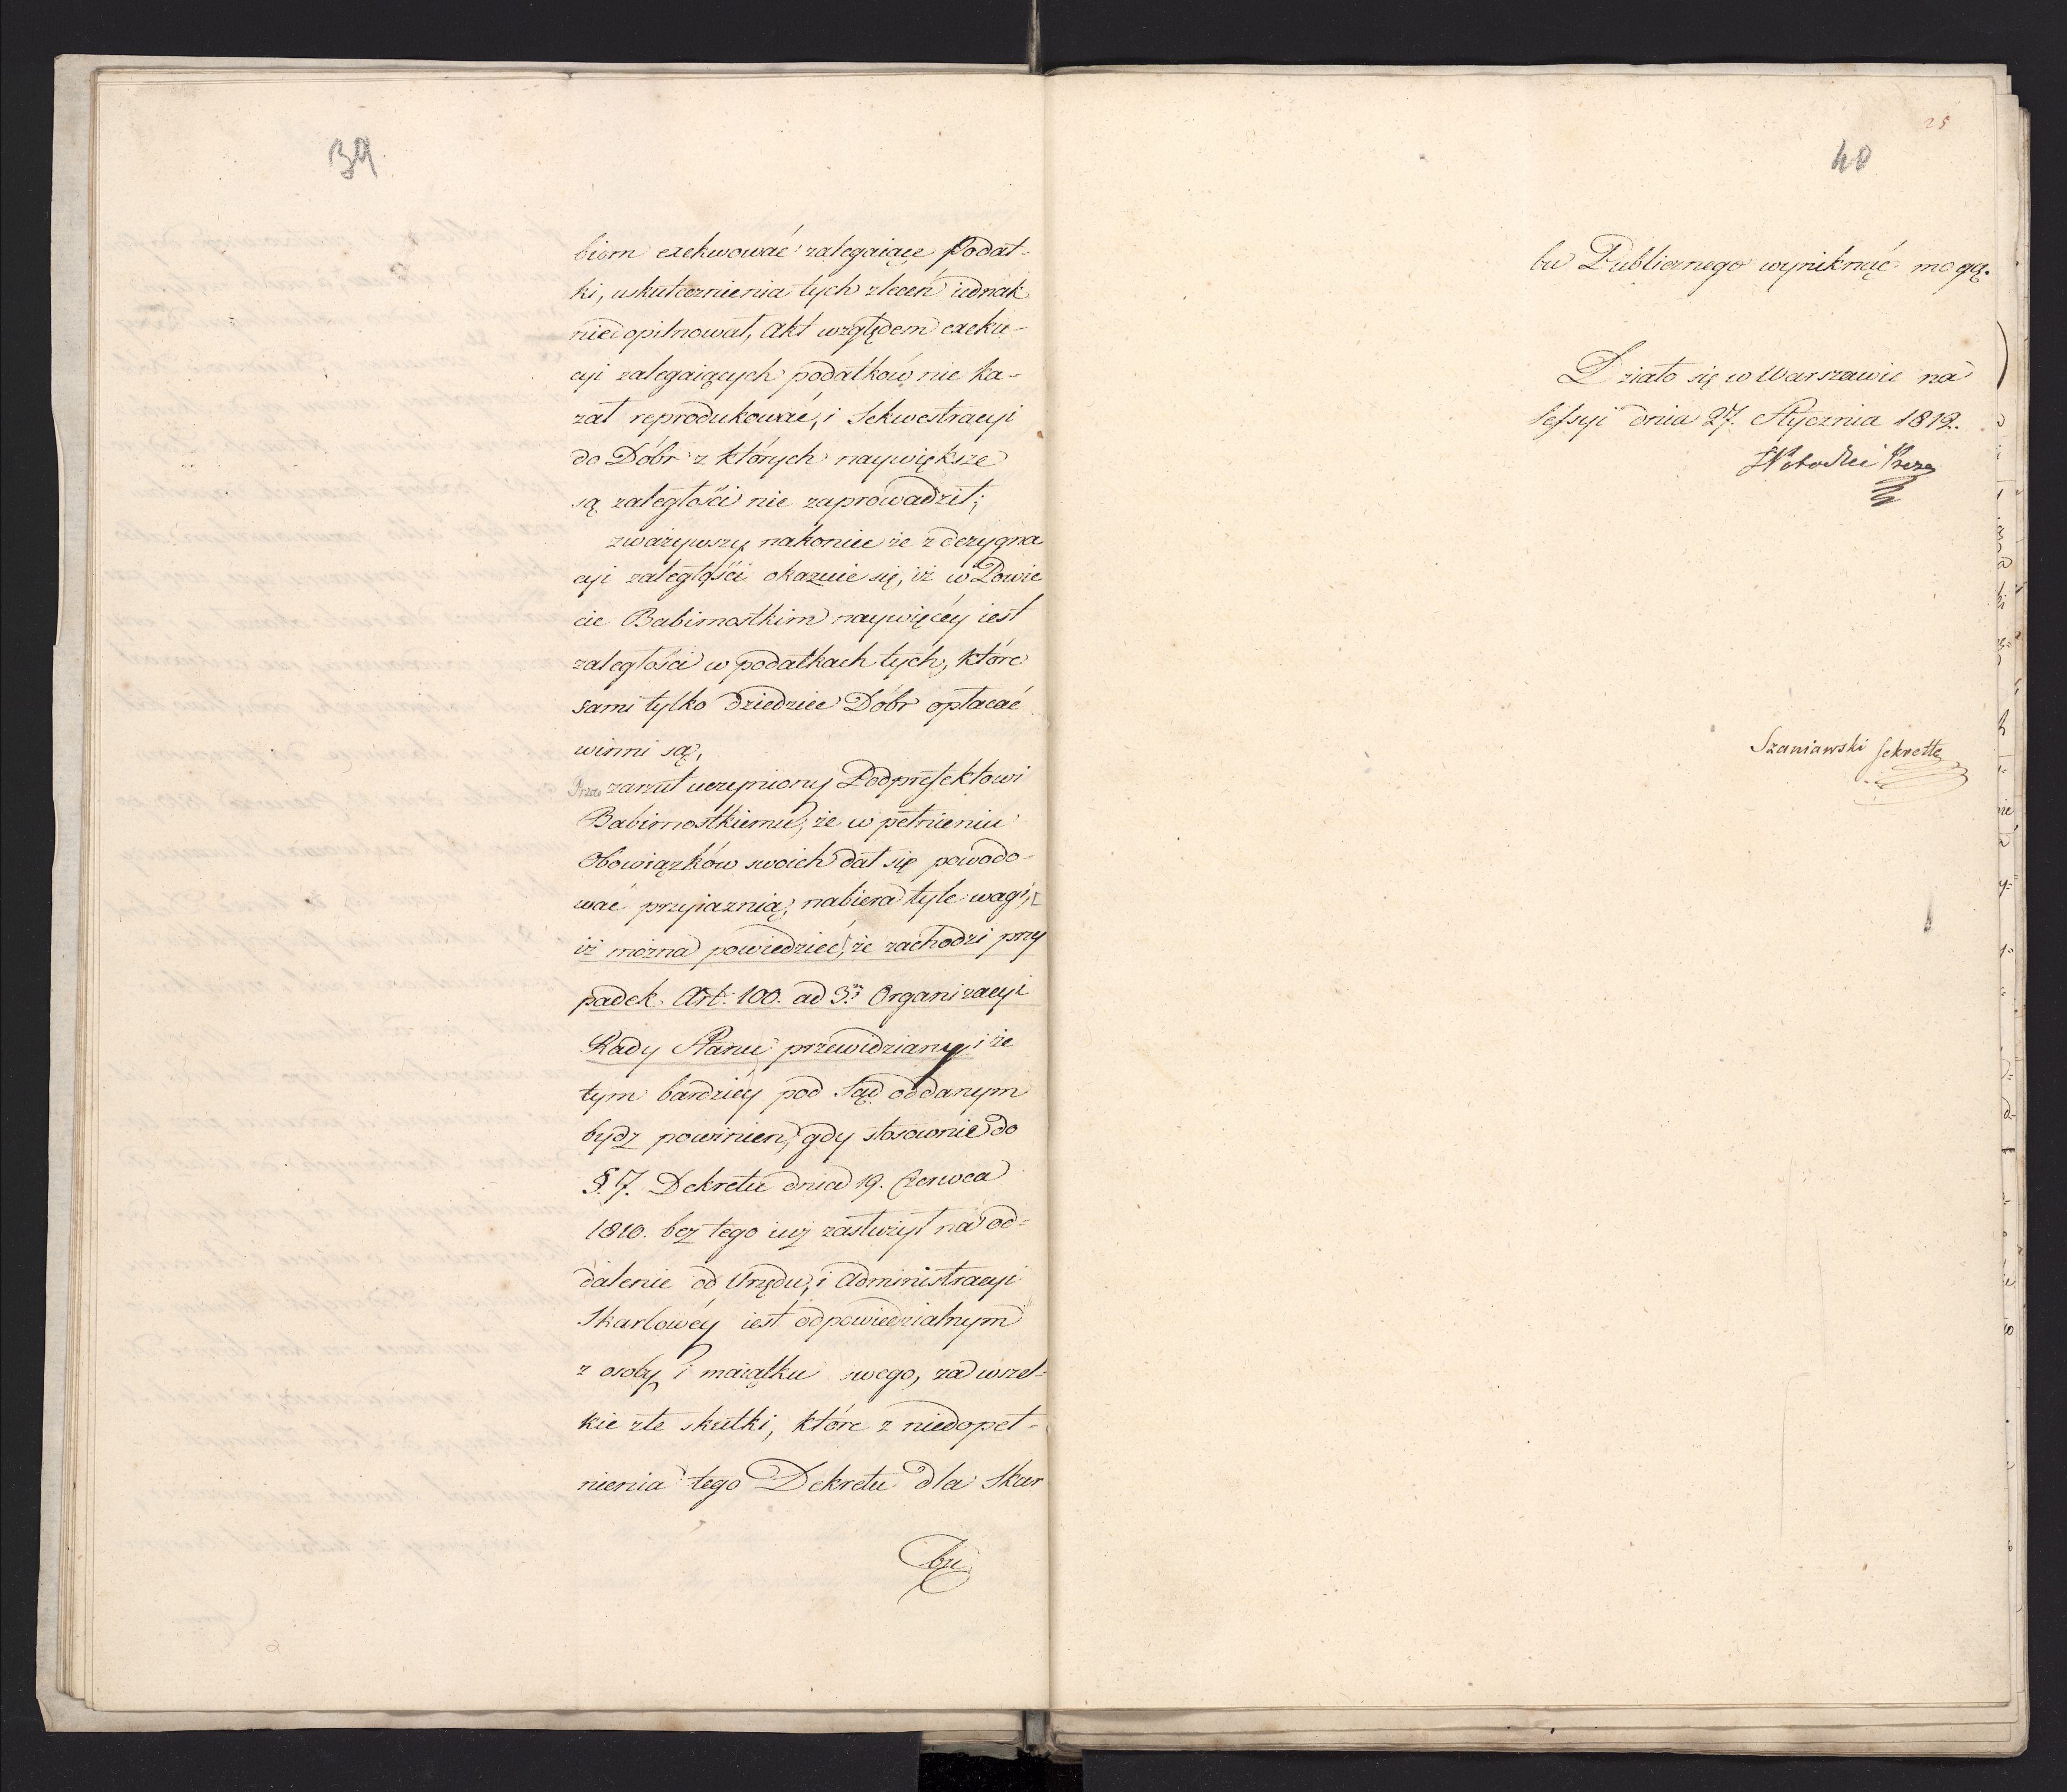 39.
biom exekwować zalegaiące Podat-
ki, uskutecznienia tych zleceń iednak
niedopilnował, Akt względem exeku-
cyi zalegaiących podatków nie ka-
zał reprodukować, i Sekwestracyi
do Dóbr z których naywiększe
są zaległości nie zaprowadził;
zważywszy nakoniec że z dezygna
cyi zaległości okazuie się, iż w Powie
cie Babimostkim naywięcéy iest
zaległości w podatkach tych, które
sami tylko Dziedzice Dóbr opłacać
winni są,
Przeto zarzut uczyniony Podprefektowi
Babimostkiemu, że w pełnieniu
Obowiązków swoich dał się powodo-
wać przyiaznią, nabiera tyle wagi,
iż można powiedzieć, że zachodzi przy
padek Art: 100. ad 3. Organizacyi
Rady Stanu przewidziany i że
tym bardziéy pod Sąd oddanym
bydz powinien, gdy stosownie do
§. 7. Dekretu dnia 19. Czerwca
1810. bez tego iuż zasłużył na od=
dalenie od Urzędu, i Administracyi
Skarbowéy iest odpowiedzialnym
z osoby i maiątku swego, za wszel-
kie złe skutki, które z niedopeł-
nienia tego Dekretu dla Skar
bu
25
40
bu Publicznego wyniknąć mogą.
Działo się w Warszawie na
Sessyi dnia 27. Stycznia 1812.
Prezes
Szaniawski Sekrettz